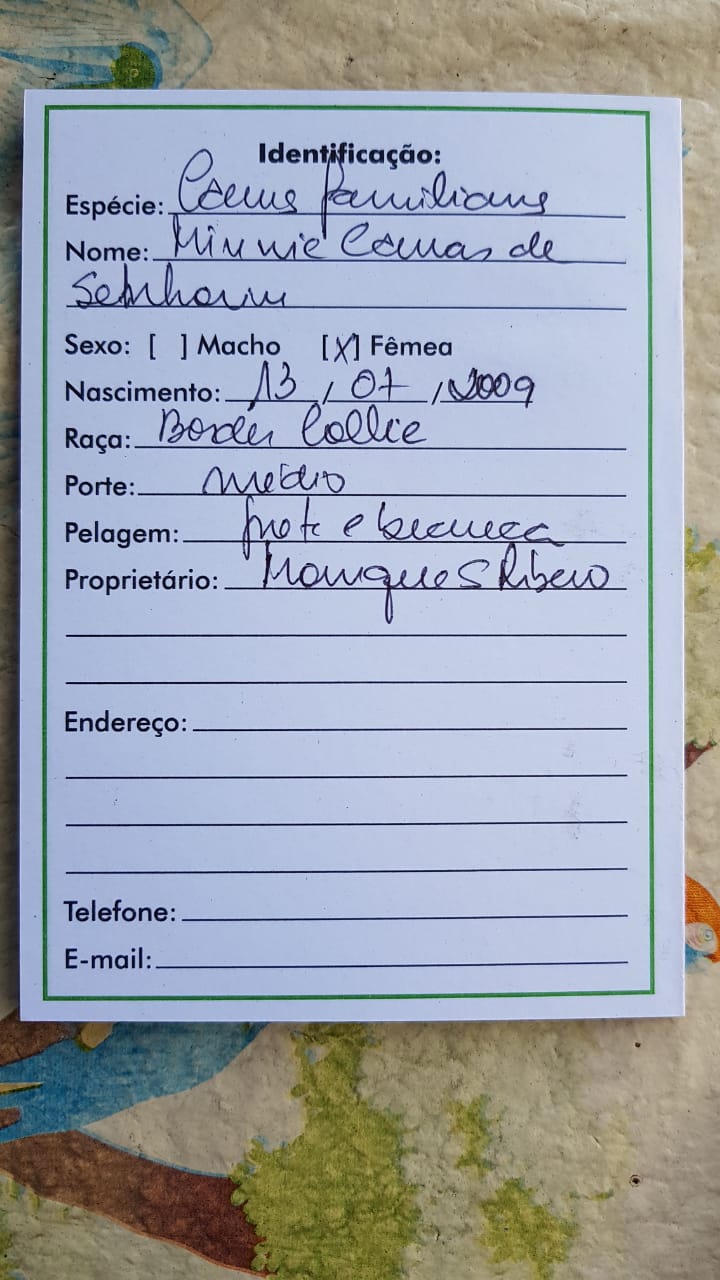 Identificação:
Espécie: Canis familiaris
Nome: Minnie de
Sexo: [ ] Macho [X] Fêmea
Nascimento: 13 / 07 / 2009
Raça: Border Collie
Porte: médio
Pelagem: preta e branca
Proprietário: Ribeiro
Endereço:
Telefone:
E-mail: